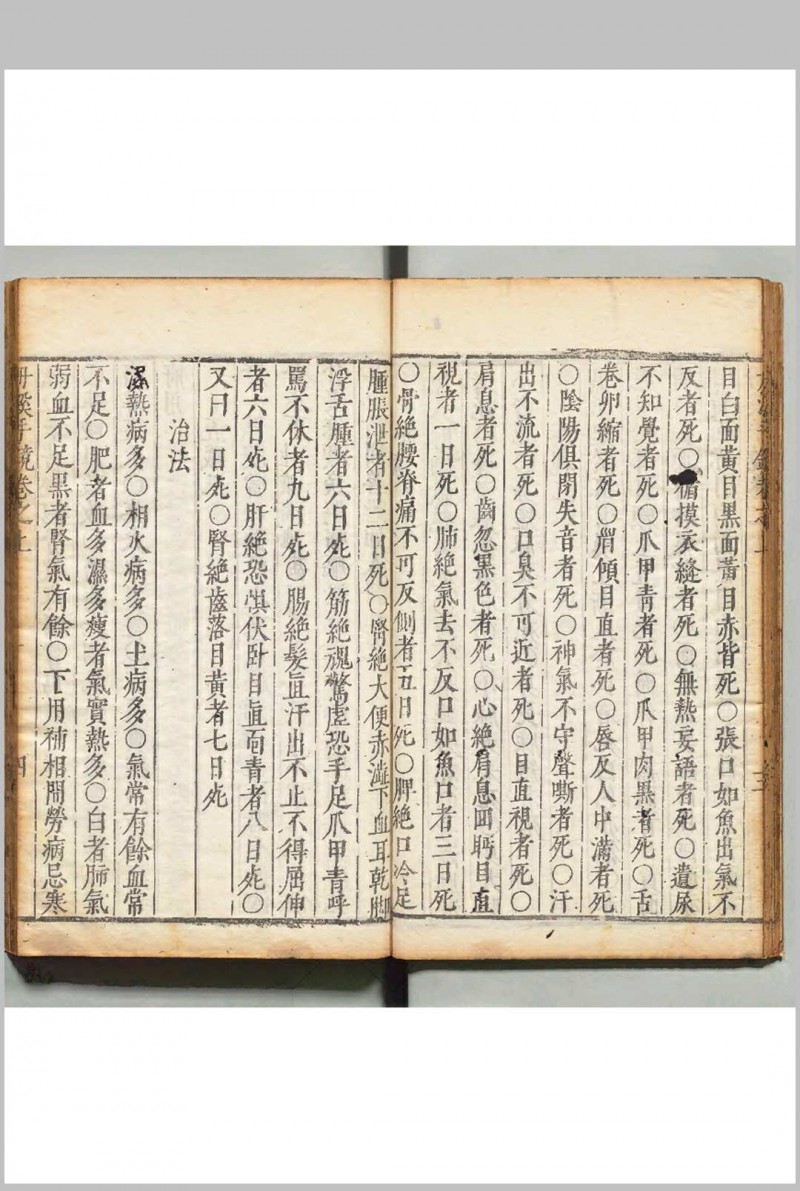 目白面黃目黑面黃目赤皆死○張口如魚出氣不
反者死○循摸衣縫者死○無熱妄語者死○遺尿
不知覺者死○爪甲青者死○爪甲肉黑者死○舌
卷卵縮者死○眉傾目直者死○唇反人中滿者死
○陰陽俱閉失音者死○神氣不守聲嘶者死○汗
出不流者死○口臭不可近者死○目直視者死○
肩息者死○齒忽黑色者死○心絶肩息回眄目直
視者一日死○肺絶氣去不反口如魚口者三日死
○骨絶腰脊痛不可反側者五日死○脾絶口冷足
腫脹泄者十二日死○腎絶大便赤澁下血耳乾脚
浮舌腫者六日死○筋絶魂驚虛恐手足爪甲青呼
罵不休者九日死○腸絶髮直汗出不止不得屈伸
者六日死○肝絶恐懼伏卧目直面青者八日死○
又曰一日死○腎絶齒落目黃者七日死
治法
濕熱病多○相火病多○土病多○氣常有餘血常
不足○肥者血多濕多瘦者氣實熱多○白者肺氣
弱血不足黑者腎氣有餘○下用補相間勞病忌寒
丹溪手鏡卷之上 四